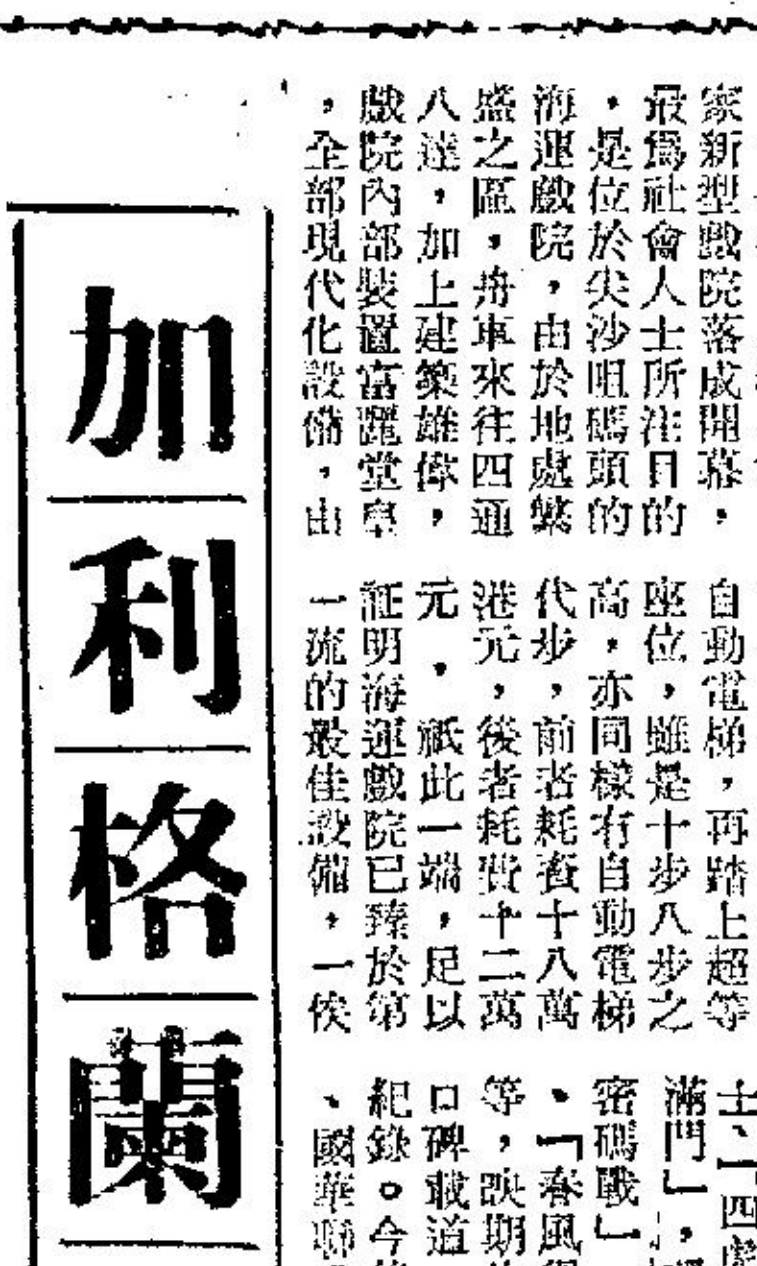 家新型戲院落成開幕，
最爲社會人士所注目的
，是位於尖沙咀碼頭的
海運戲院，由於地處繁
盛之區，舟車來往四通
八達，加上建築雄偉，
戲院內部裝置富麗堂皇
，全部現代化設備，由
自動電梯，再踏上超等
座位，雖是十步八步之
高，亦同樣有自動電梯
代步，前者耗資十八萬
港元，後者耗費十二萬
元，祇此一端，足以
証明海運戲院已臻於第
一流的最佳設備，一俟
士、「四
滿門」，
密碼戰」
、「春風
等，映期
口碑載道
紀錄。今
、國華聯
加利格蘭